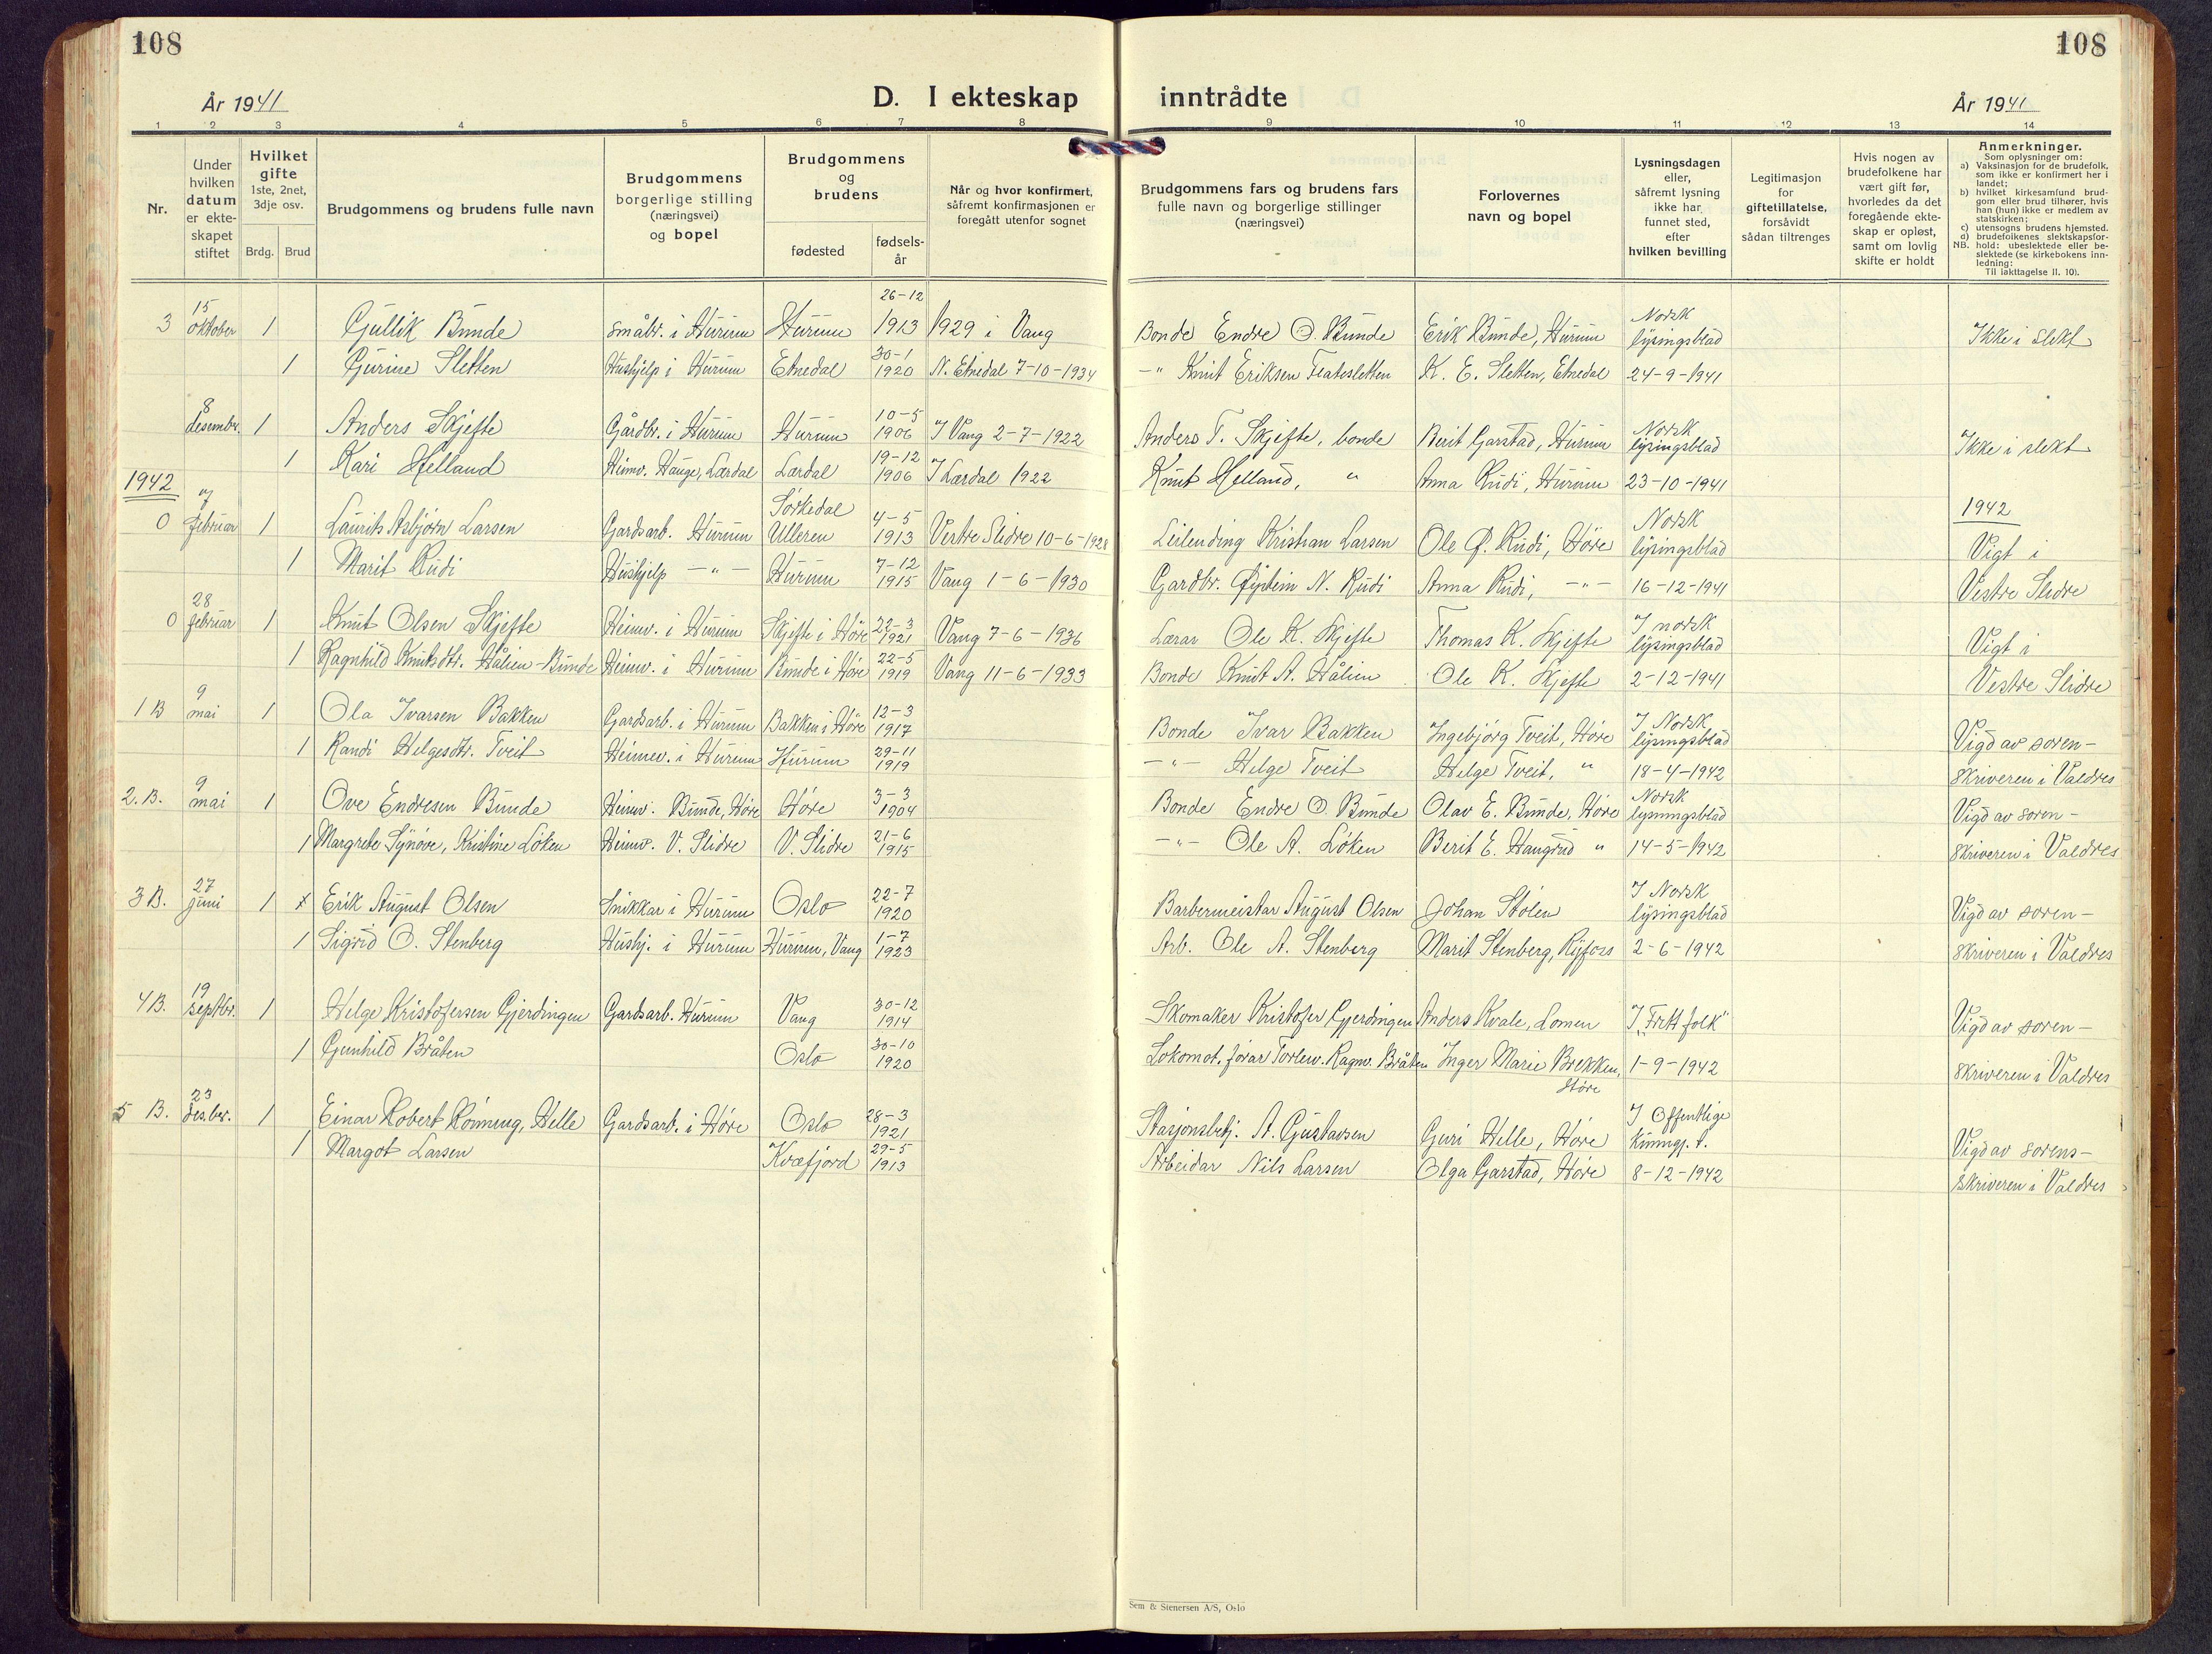 108
108
År 1941
D. I ekteskap inntrådte
År 1941
1 2 3 4 5 6 7 8 9 10 11 12 13 14
Nr.
Under hvilken datum er ekte-skapet stiftet
Hvilket gifte
1ste, 2net, 3dje osv.
Brdg. Brud
Brudgommens og brudens fulle navn
Brudgommens borgerlige stilling (næringsvei) og bopel
Brudgommens og brudens
fødested
fødsels-år
Når og hvor konfirmert, såfremt konfirmasjonen er foregått utenfor sognet
Brudgommens fars og brudens fars fulle navn og borgerlige stillinger (næringsvei)
Forlovernes navn og bopel
Lysningsdagen eller, såfremt lysning ikke har funnet sted, efter hvilken bevilling
Legitimasjon for giftetillatelse, forsåvidt sådan tiltrenges
Hvis nogen av brudefolkene har vært gift før, hvorledes da det foregående ekte-skap er opløst, samt om lovlig skifte er holdt
Anmerkninger.
Som oplysninger om:
a) Vaksinasjon for de brudefolk, som ikke er konfirmert her i landet;
b) hvilket kirkesamfund brud-gom eller brud tilhører, hvis han (hun) ikke er medlem av statskirken;
c) utensogns brudens hjemsted.
d) brudefolkenes slektskapsfor-hold: ubeslektede eller be-slektede (se kirkebokens inn-ledning:
NB. Til iakttagelse II. 10).
3 15 oktober 1 Gullik Bunde Småbr. i Hurum Hurum 26-12 1913 1929 i Vang Bonde Endre O. Bunde Erik Bunde, Hurum Norsk lysingsblad Ikke i slekt
1 Gurine Sletten Hushjelp i Hurum Etnedal 30-1 1920 N. Etnedal 7-10-1934 -"- Knut Eriksen Flatesletten K. E. Sletten, Etnedal 24-9-1941
8 desembr. 1 Anders Skjefte Gårdbr. i Hurum Hurum 10-5 1906 I Vang 2-7-1922 Anders T. Skjefte, bonde Berit Garstad, Hurum Norsk lysingsblad Ikke i slekt
1 Kari Helland Heimv. Hauge, Lærdal Lærdal 19-12 1906 I Lærdal 1922 Knut Helland, " Anna Rudi, Hurum 23-10-1941
1942
1942
0 7 februar 1 Laurits Asbjørn Larsen Gardsarb. Hurum Sørkedal Ulleren 4-5 1913 Vestre Slidre 10-6-1928 Leilending Kristian Larsen Ole Ø. Rudi, Høre Norsk lysingsblad Vigt i
1 Marit Rudi Hushjelp -"- Hurum 7-12 1915 Vang 1-6-1930 Gardbr. Øystein N. Rudi Anna Rudi, -"- 16-12-1941 Vestre Slidre
0 28 februar 1 Knut Olsen Skjefte Heimv. i Hurum Skjefte i Høre 22-3 1921 Vang 7-6-1936 Lærar Ole K. Skjefte Thomas K. Skjefte I norsk lysingsblad Vigt i
1 Ragnhild Knutsdtr. Hålien-Bunde Heimv. i Hurum Bunde i Høre 22-5 1919 Vang 11-6-1933 Bonde Knut A. Hålien Ole K. Skjefte 2-12-1941 Vestre Slidre
1 B 9 mai 1 Ola Ivarsen Bakken Gardsarb. i Hurum Bakken i Høre 12-3 1917 Bonde Ivar Bakken Ingebjørg Tveit, Høre I Norsk lysingsblad Vigd av soren-
1 Randi Helgesdtr. Tveit Heimev. i Hurum Hurum 29-11 1919 -"- Helge Tveit Helge Tveit, " 18-4-1942 skriveren i Valdres
2. B. 9 mai 1 Ove Endresen Bunde Heimv. Bunde, Høre Høre 3-3 1904 Bonde Endre O. Bunde Olav E. Bunde, Høre Norsk lysningsblad Vigd av soren-
1 Margrete Synøve, Kristine Løken Heimv. V. Slidre V. Slidre 21-6 1915 -"- Ole A. Løken Berit E. Haugrud " 14-5-1942 skriveren i Valdres
3 B. 27 juni 1 x Erik August Olsen Snikkar i Hurum Oslo 22-7 1920 Barbermeistar August Olsen Johan Stølen I Norsk lysingsblad Vigd av soren-
1 Sigrid O. Stenberg Hushj. i Hurum Hurum, Vang 1-7 1923 Arb. Ole A. Stenberg Marit Stenberg, Ryfoss 2-6-1942 skriveren i Valdres
4 B. 19 septbr. 1 Helge Kristofersen Gjerdingen Gardsarb. Hurum Vang 30-12 1914 Skomaker Kristofer Gjerdingen Anders Kvale, Lomen I "Fritt folk" Vigd av soren-
1 Gunhild Bråten Oslo 30-10 1920 Lokomot. førar Torleiv. Ragnv. Bråten Inger Marie Brekken, Høre 1-9-1942 skriveren i Valdres
5 B. 23 desbr. 1 Einar Robert Rönning, Helle Gardsarb. i Høre Oslo 28-3 1921 Stasjonsbetj. A. Gustavsen Guri Helle, Høre I Offentlige kunngj. t. Vigd av sorens-
1 Margot Larsen Kvæfjord 29-5 1913 Arbeidar Nils Larsen Olga Garstad, Høre 8-12-1942 skriveren i Valdres
Sem & Stenersen A/S, Oslo